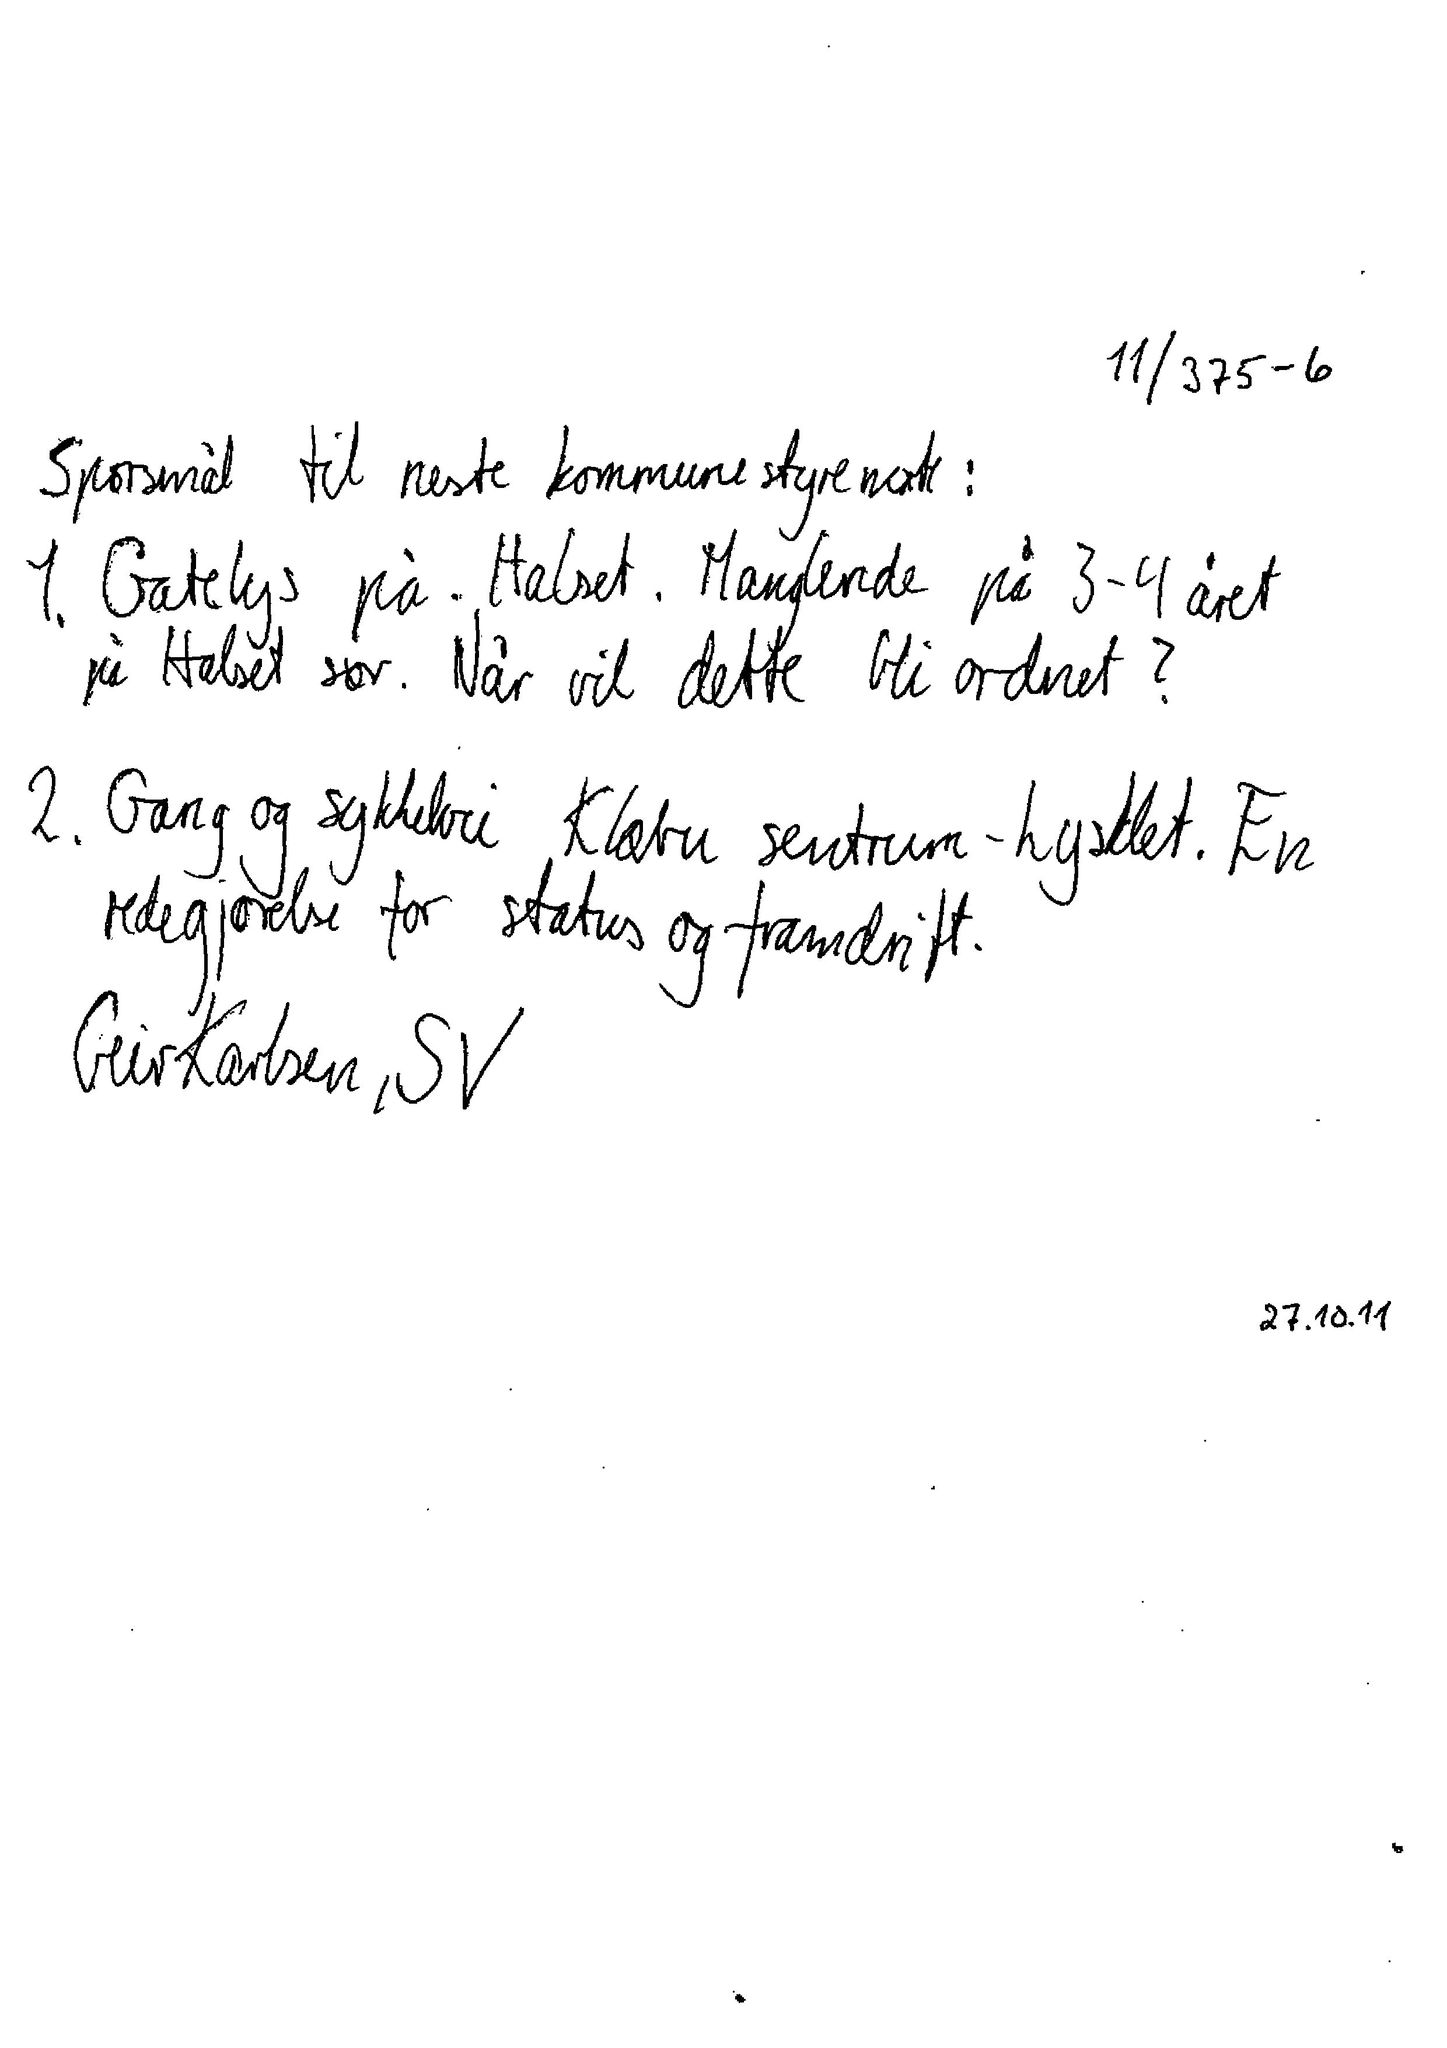 11/375-6
Spørsmål til neste kommunestyremøte:
1. Gatelys på Halset. Manglende på 3-4 året
på Halset sør. Når vil dette bli ordnet?
2. Gang og sykkelvei Klæbu sentrum - Lysklet. En
redegjørelse for status og framdrift.
Geir Karlsen, SV
27.10.11